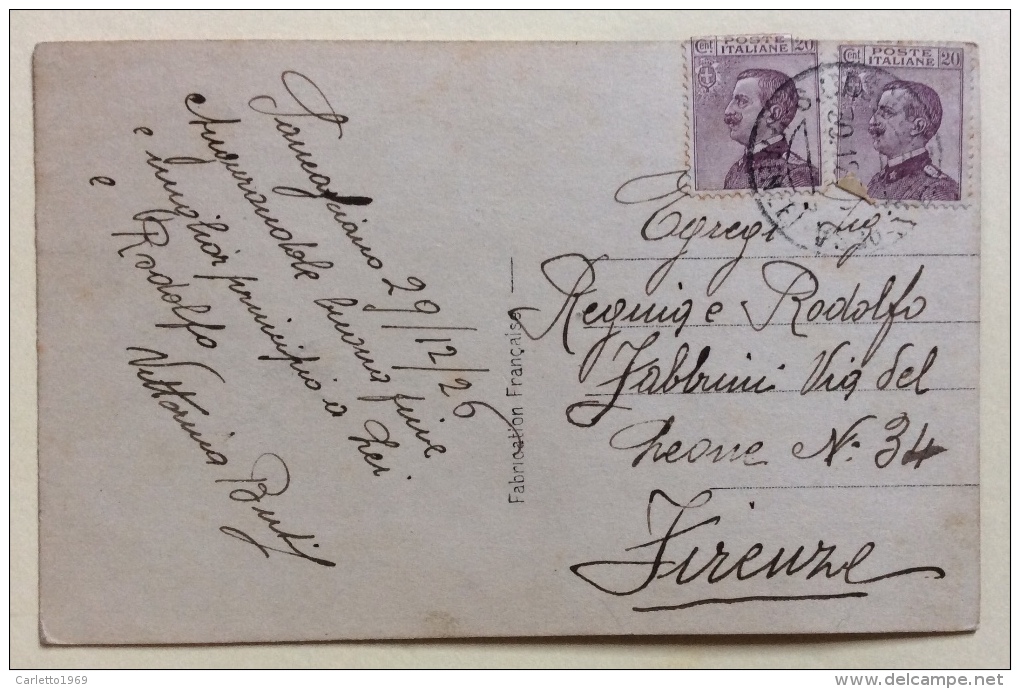 Sancasciano 29/12/26
Augurandole buona fine
e miglior principio a Lei
e Rodolfo
Vittoria Buti
Fabrication Française
Cent POSTE 20
ITALIANE
Cent POSTE 20
ITALIANE
Egregi Sig.
Regina e Rodolfo
Fabbrini Via del
Leone N: 34
Firenze
Carletto1969
delcampe.net